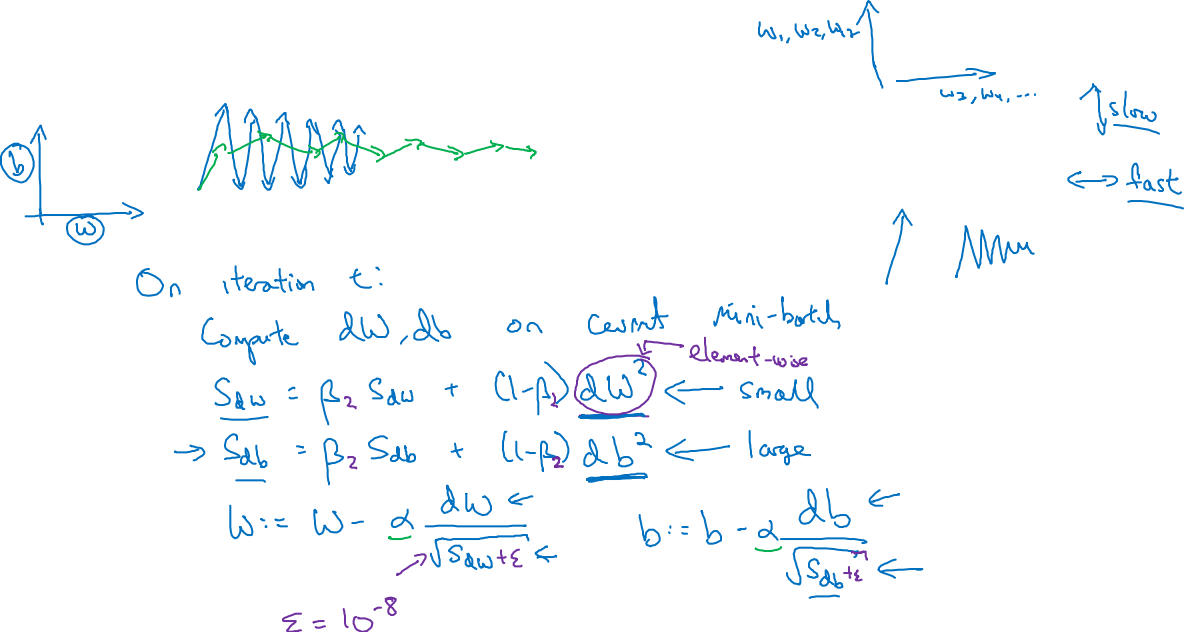 w₁, w₂, w₂
w₃, w₄, ...
slow
fast
b
w
On iteration t:
Compute dW, db on current mini-batch
element-wise
S_dw = β₂ S_dw + (1-β₂) dW² ← small
→ S_db = β₂ S_db + (1-β₂) db² ← large
W := W - α dW / √(S_dw + ε) b := b - α db / √(S_db + ε)
ε = 10⁻⁸